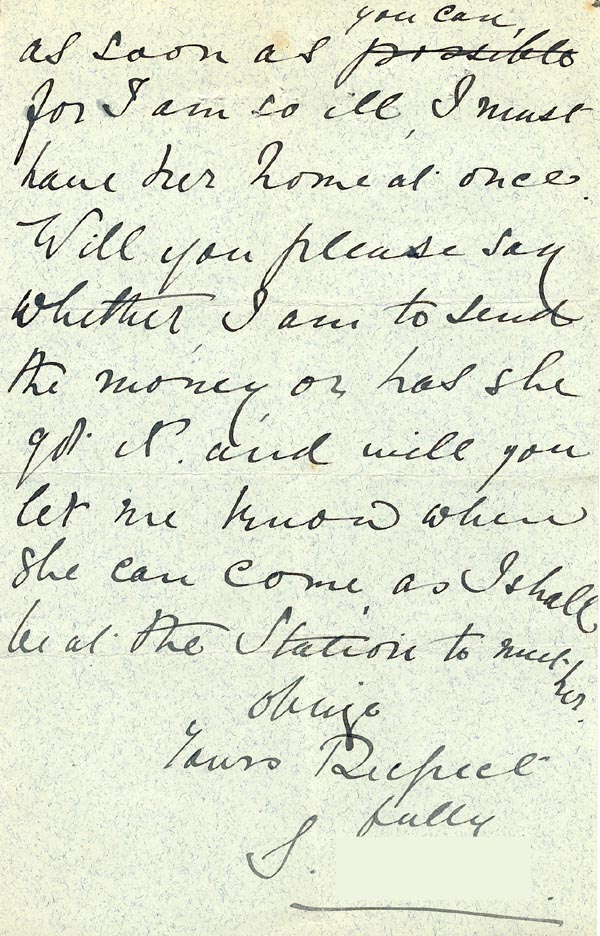 you can,
as soon as possible
for I am so ill, I must
have her home at once.
Will you please say
whether, I am to send
the money, or has she
got it. and will you
let me know when
she can come, as I shall
be at the Station to meet
her.
oblige
Yours Respect
fully
S.